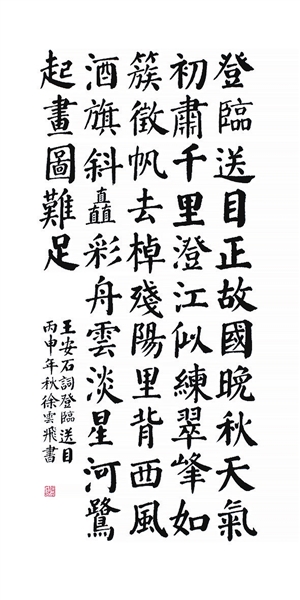 登臨送目正故國晚秋天氣
初肅千里澄江似練翠峰如
簇徵帆去棹殘陽里背西風
酒旗斜矗彩舟雲淡星河鷺
起畫圖難足
王安石詞登臨送目
丙申年秋徐雲飛書